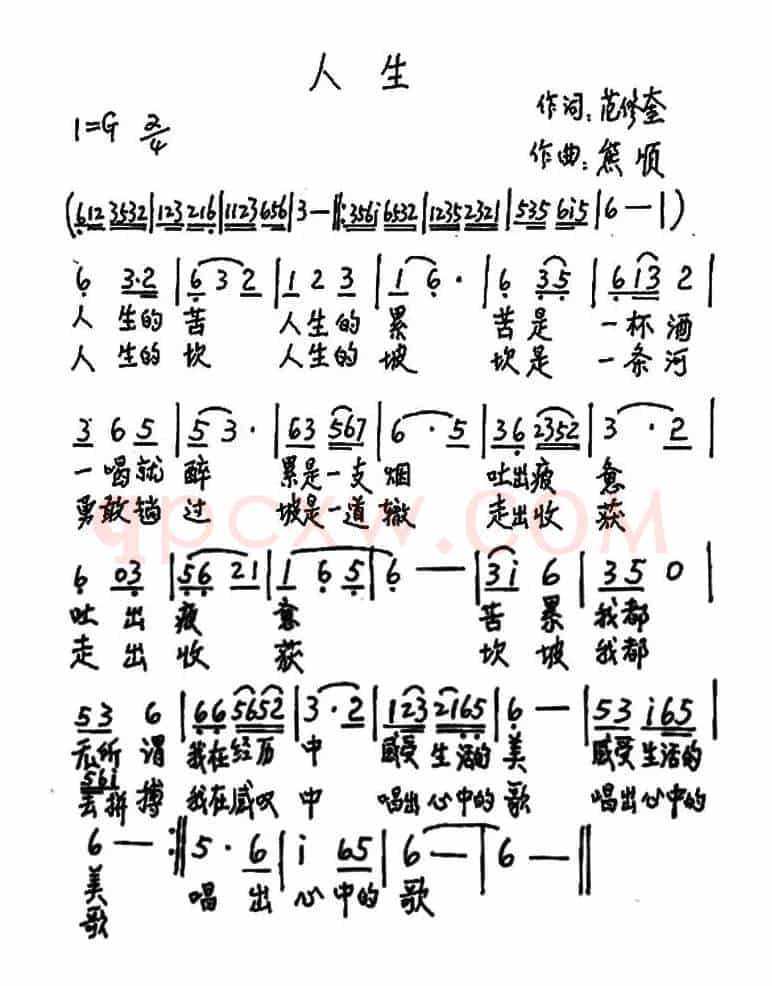 人 生
作词：范修奎
1=G 2/4
作曲：熊顺
(612 3532|123 216|1123 656|3—‖:3561 6532|1235 2321|535 615|6—|)
6 3·2|6 3 2|1 2 3|1 6·|6 35|613 2|
人 生的 苦 人生的 累 苦 是 一杯 酒
人 生的 坎 人生的 坡 坎 是 一条 河
3 6 5|5 3·|63 567|6·5|36 2352|3·2|
一 喝就 醉 累是一支 烟 吐出疲 惫
勇敢 𬧀 过 坡是一道 辙 走出收 获
6 03|56 21|1 6 5|6—|31 6|35 0|
吐 出 疲 惫 苦 累 我都
走 出 收 获 坎 坡 我都
53 6|66 5652|3·2|123 2165|6—|53 165|
无所 谓 我在经历 中 感受 生活的 美 感受生活的
561
去拼 搏 我在感叹 中 唱出心中的 歌 唱出心中的
6—:‖5·6|i 65|6—|6—‖
美 唱 出 心 中的 歌
歌
qpcxw.COM